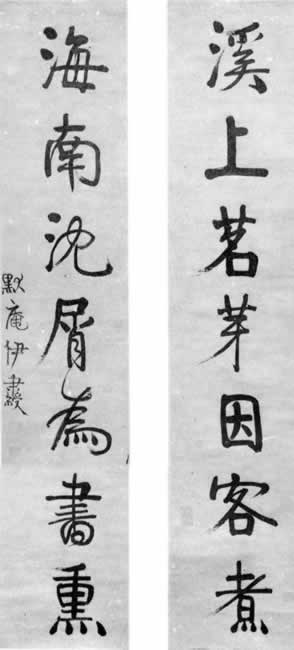 溪上茗芽因客煮
海南沈屑為書熏
默庵伊秉綬